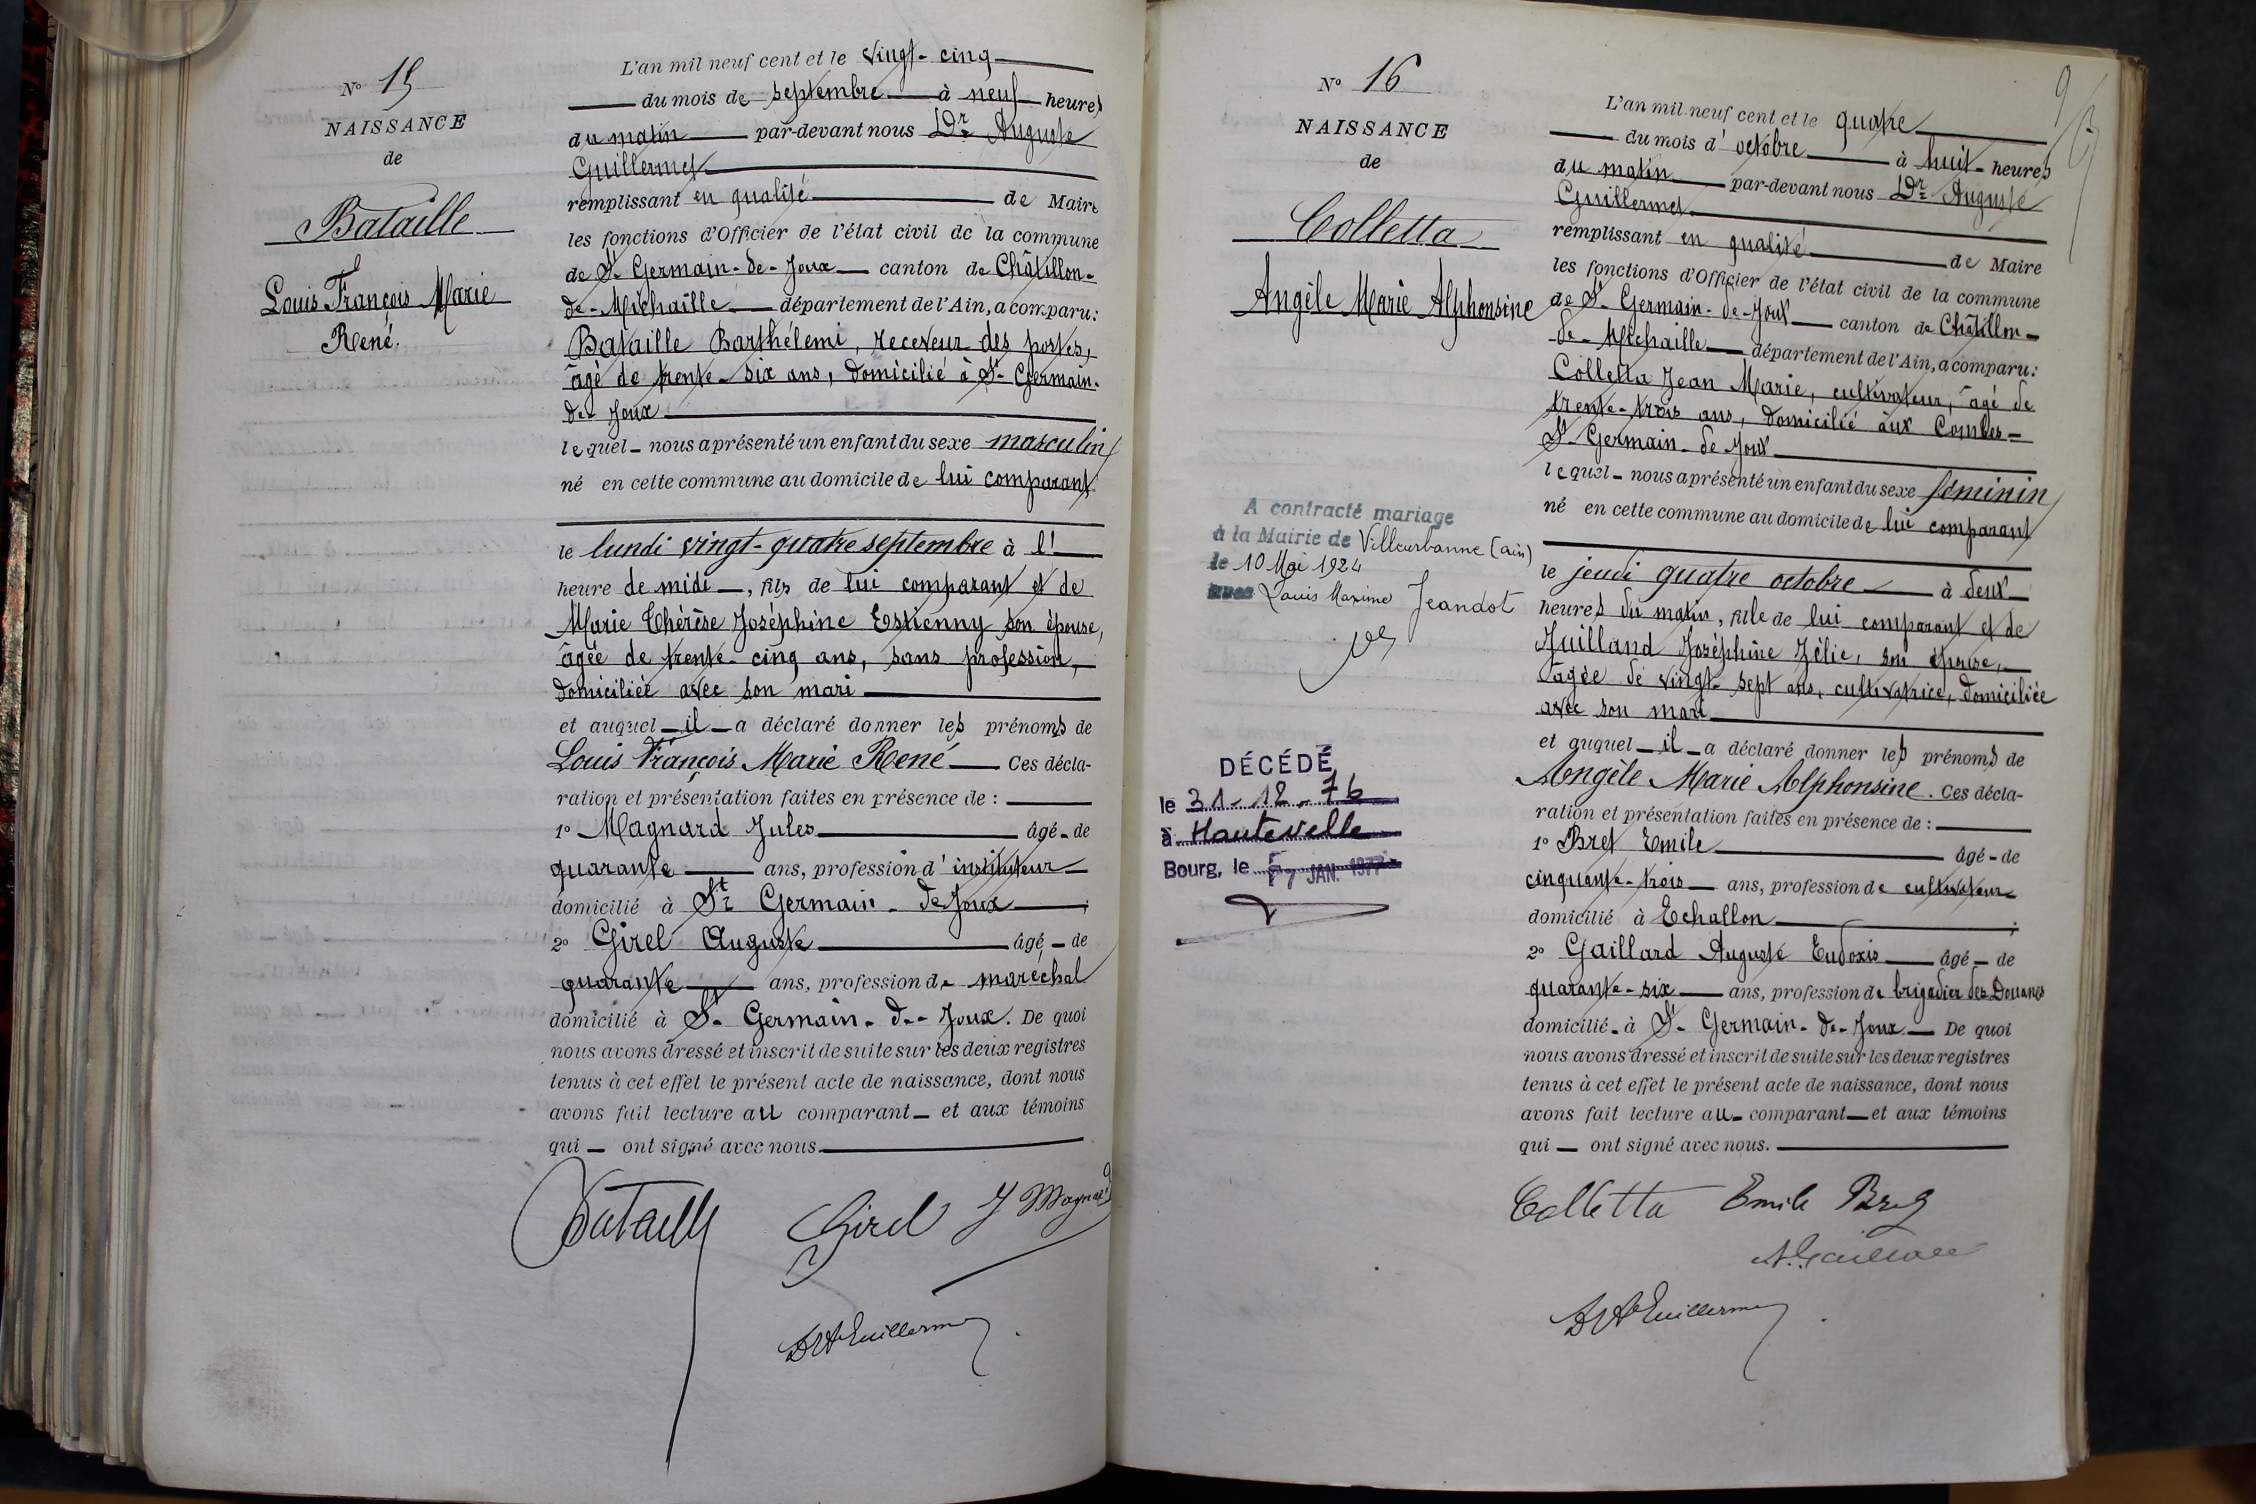 N° 15
NAISSANCE
de
Bataille
Louis François Marie
René.
L'an mil neuf cent et le vingt-cinq
du mois de septembre à neuf heures
du matin par-devant nous Dr Auguste
Guillermet
remplissant en qualité de Maire
les fonctions d'Officier de l'état civil de la commune
de St Germain-de-Joux canton de Châtillon-
de-Michaille département de l'Ain, a comparu :
Bataille Barthélemi, receveur des postes,
âgé de trente-six ans, domicilié à St Germain-
de-Joux
lequel nous a présenté un enfant du sexe masculin
né en cette commune au domicile de lui comparant
le lundi vingt-quatre septembre à l'
heure de midi, fils de lui comparant et de
Marie Thérèse Joséphine Estienny son épouse,
âgée de trente-cinq ans, sans profession,
domiciliée avec son mari
et auquel il a déclaré donner les prénoms de
Louis François Marie René Ces décla-
ration et présentation faites en présence de :
1° Magnard Jules âgé de
quarante ans, profession d'instituteur
domicilié à St Germain-de Joux ;
2° Girel Auguste âgé de
quarante ans, profession de maréchal
domicilié à St Germain-de-Joux. De quoi
nous avons dressé et inscrit de suite sur les deux registres
tenus à cet effet le présent acte de naissance, dont nous
avons fait lecture au comparant et aux témoins
qui ont signé avec nous
Bataille Girel J Magnard
Dr Ate Guillermet
N° 16
NAISSANCE
de
Colletta
Angèle Marie Alphonsine
A contracté mariage
à la Mairie de Villeurbanne (ain)
le 10 Mai 1924
avec Louis Maxime Jeandot
DÉCÉDÉ
le 31-12-76
à Hauteville
Bourg, le 7 JAN. 1977
9
L'an mil neuf cent et le quatre
du mois d'octobre à huit heures
du matin par-devant nous Dr Auguste
Guillermet
remplissant en qualité de Maire
les fonctions d'Officier de l'état civil de la commune
de St Germain-de-Joux canton de Châtillon-
de-Michaille département de l'Ain, a comparu :
Colletta Jean Marie, cultivateur, âgé de
trente-trois ans, domicilié aux Combes-
St Germain-de-Joux
lequel nous a présenté un enfant du sexe féminin
né en cette commune au domicile de lui comparant
le jeudi quatre octobre à deux
heures du matin, fille de lui comparant et de
Juilland Joséphine Zélie, son épouse,
âgée de vingt-sept ans, cultivatrice, domiciliée
avec son mari
et auquel il a déclaré donner les prénoms de
Angèle Marie Alphonsine. Ces décla-
ration et présentation faites en présence de :
1° Bret Emile âgé de
cinquante-trois ans, profession de cultivateur
domicilié à Echallon ;
2° Gaillard Auguste Eudoxis âgé de
quarante-six ans, profession de brigadier des Douanes
domicilié à St Germain-de-Joux De quoi
nous avons dressé et inscrit de suite sur les deux registres
tenus à cet effet le présent acte de naissance, dont nous
avons fait lecture au comparant et aux témoins
qui ont signé avec nous.
Colletta Emile Bret
A. Gaillard
Dr Ate Guillermet